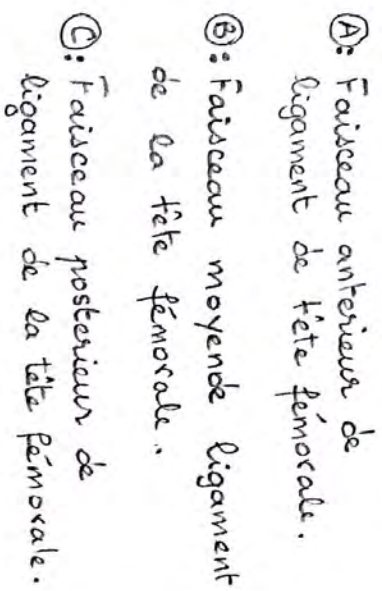 Ⓐ: Faisceau anterieur de
ligament de tête fémorale.
Ⓑ: Faisceau moyende ligament
de la tête fémorale.
Ⓒ: Faisceau posterieur de
ligament de la tête fémorale.